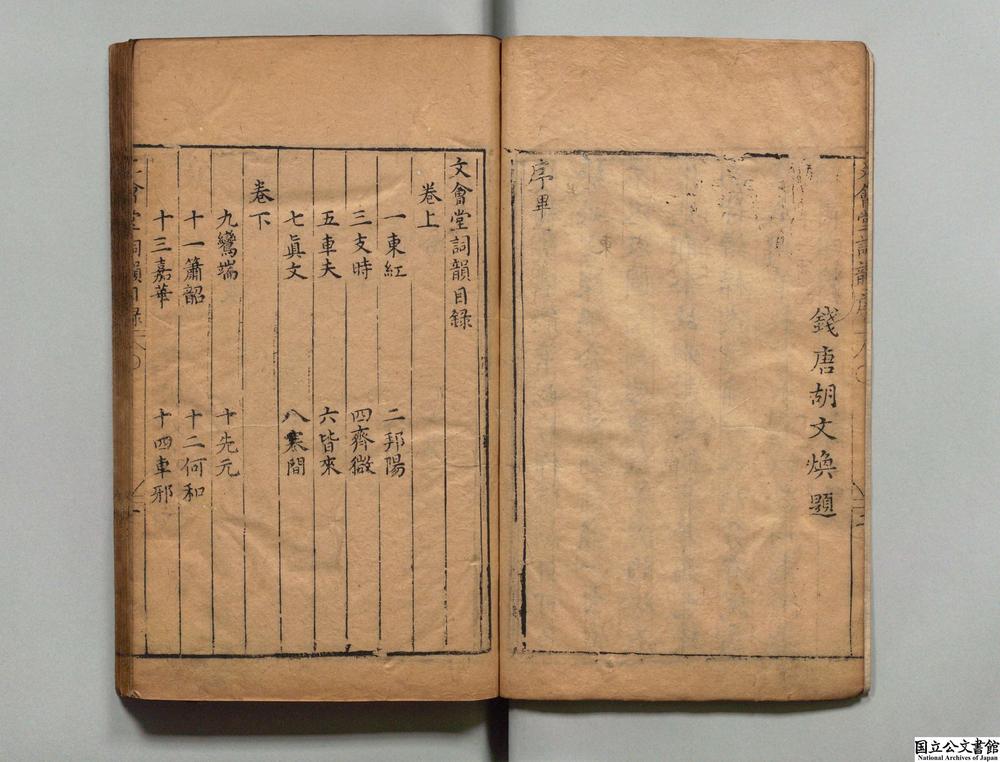 錢唐胡文煥題
序畢
文會堂詞韻目録
卷上
一東紅 二邦陽
三支時 四齊微
五車夫 六皆來
七眞文 八寒間
卷下
九鸞端 十先元
十一簫韶 十二何和
十三嘉華 十四車邪
国立公文書館
National Archives of Japan